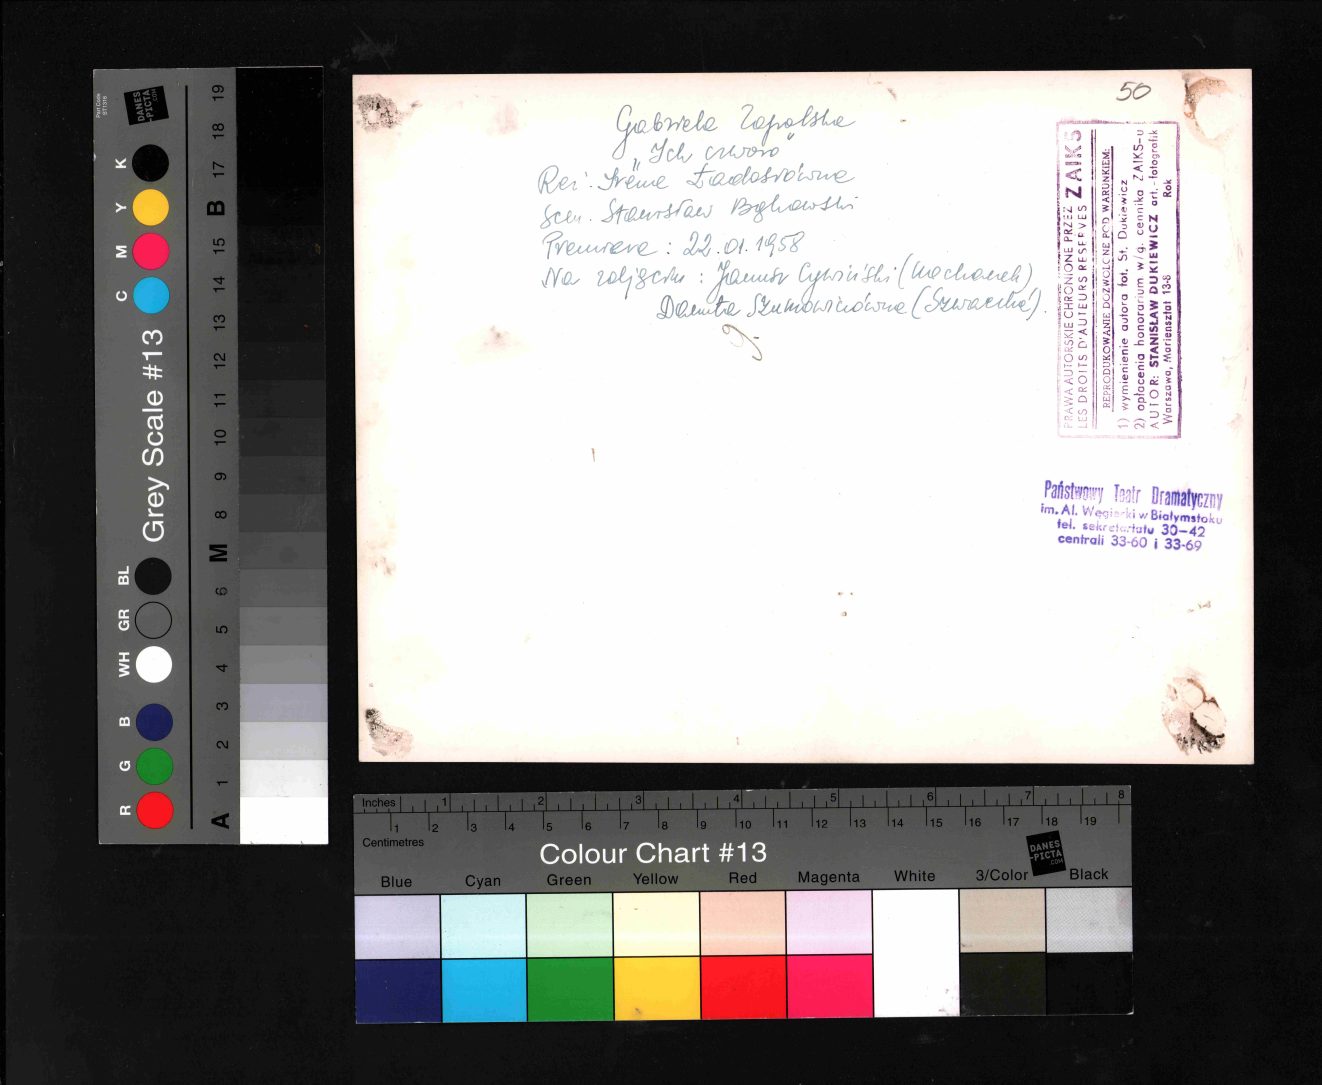 50
Gabriela Zapolska
"Ich czworo"
Reż. Irena Ładosiówna
Scen. Stanisław Bąkowski
Premiera: 22.01.1958
Na zdjęciu: Janusz Cywiński (Kochanek)
Danuta Szumowiczówna (Szwaczka).
PRAWA AUTORSKIE CHRONIONE PRZEZ ZAIKS
LES DROITS D'AUTEURS RESERVES
REPRODUKOWANIE DOZWOLONE POD WARUNKIEM:
1) wymienienie autora fot. St. Dukiewicz
2) opłacenia honorarium w/g. cennika ZAIKS-u
AUTOR: STANISŁAW DUKIEWICZ art.-fotografik
Warszawa, Mariensztat 13-8 Rok
Państwowy Teatr Dramatyczny
im. Al. Węgierki w Białymstoku
tel. sekretariatu 30-42
centrali 33-60 i 33-69
Part Code
ST1316
DANES
-PICTA
.COM
Grey Scale #13
C M Y K
R G B WH GR BL
A 1 2 3 4 5 6 M 8 9 10 11 12 13 14 15 B 17 18 19
Inches 1 2 3 4 5 6 7 8
1 2 3 4 5 6 7 8 9 10 11 12 13 14 15 16 17 18 19
Centimetres
Colour Chart #13
DANES
-PICTA
.COM
Blue Cyan Green Yellow Red Magenta White 3/Color Black